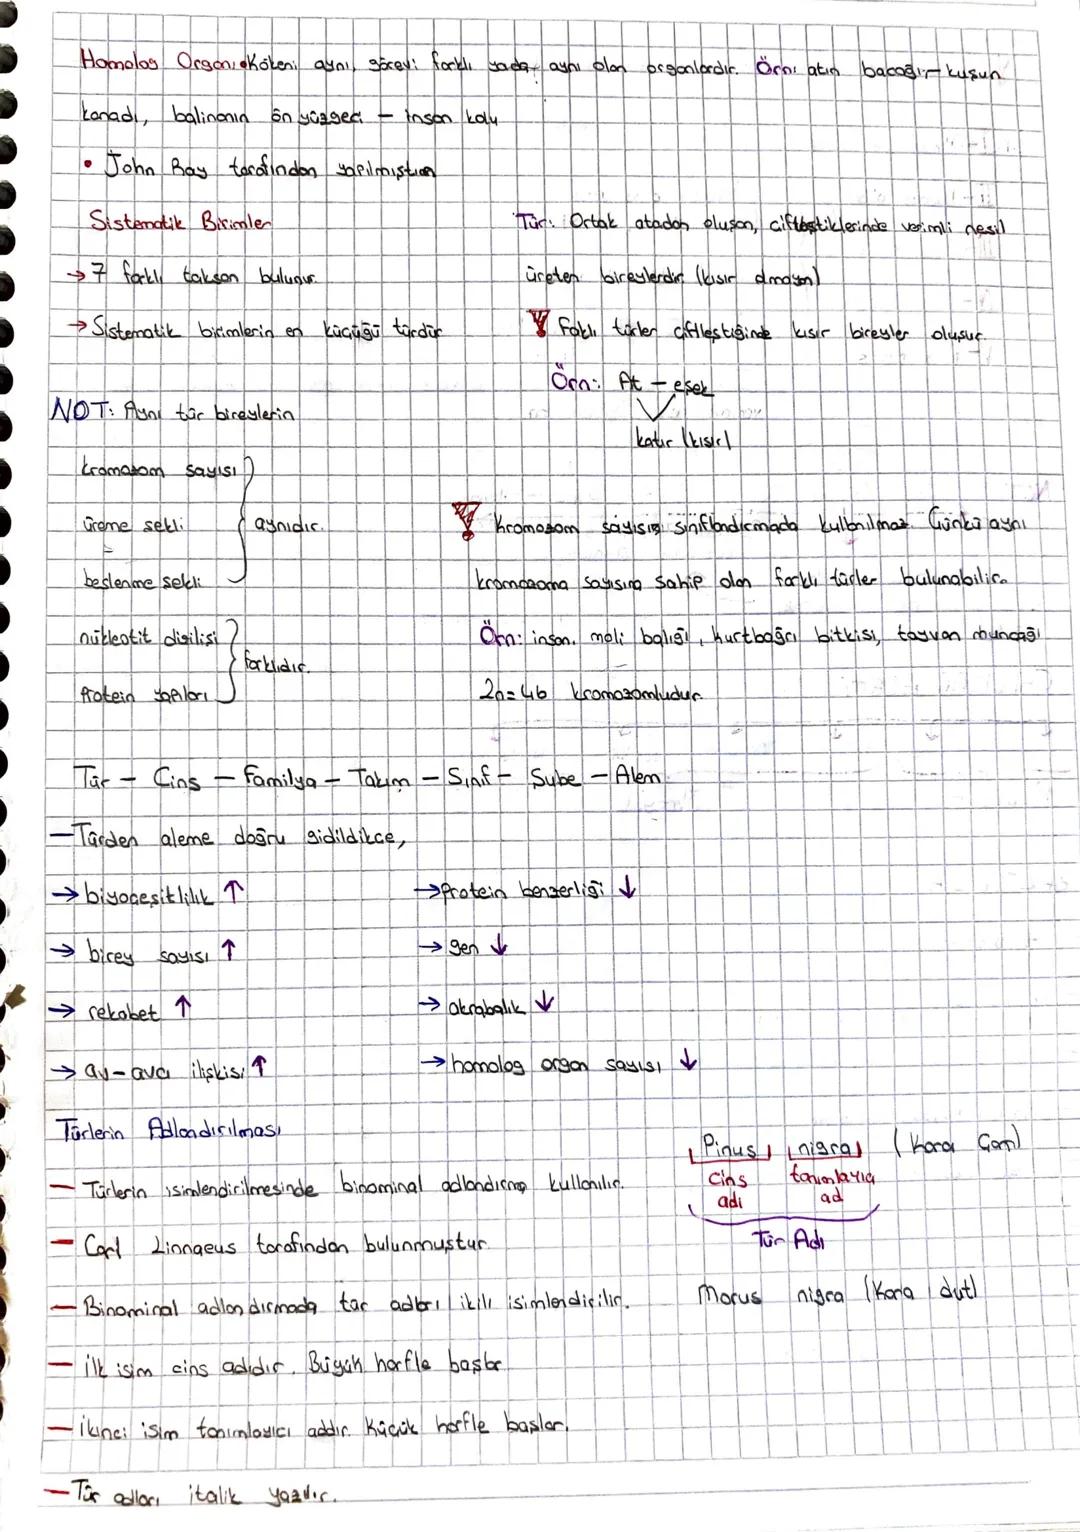 Homolog Organ: Kökeni aynı, görevi farklı yada aynı olan organlardır. Örn: atın bacağı - kuşun
kanadı, balinanın ön yüzgeci - insan kolu
• John Ray tarafından yapılmıştır
Sistematik Birimler
→ 7 farklı takson bulunur.
→ Sistematik birimlerin en küçüğü türdür
Tür: Ortak atadan oluşan, çiftleştiklerinde verimli nesil
üreten bireylerdir (kısır olmayan)
Farklı türler çiftleştiğinde kısır bireyler oluşur.
Örn: At - eşek
katır (kısır)
NOT: Aynı tür bireylerin
kromozom sayısı
üreme şekli
beslenme şekli
aynıdır.
nükleotit dizilişi
protein yapıları
farklıdır.
Kromozom sayısı sınıflandırmada kullanılmaz. Çünkü aynı
kromozoma sayısına sahip olan farklı türler bulunabilir.
Örn: insan, moli balığı, kurtbağrı bitkisi, tayvan muncağı
2n=46 kromozomludur.
Tür - Cins - Familya - Takım - Sınıf - Şube - Alem
- Türden aleme doğru gidildikçe,
→ biyoçeşitlilik ↑
→ birey sayısı ↑
→ rekabet ↑
→ av-avcı ilişkisi ↑
→ Protein benzerliği ↓
→ gen ↓
→ akrabalık ↓
→ homolog organ sayısı ↓
Türlerin Adlandırılması
- Türlerin isimlendirilmesinde binominal adlandırma kullanılır.
- Carl Linnaeus tarafından bulunmuştur.
- Binominal adlandırmada tür adları ikili isimlendirilir.
- İlk isim cins adıdır. Büyük harfle başlar
- İkinci isim tanımlayıcı addır. Küçük harfle başlar.
- Tür adları italik yazılır.
Pinus nigra (Kara Çam)
Cins adı
tanımlayıcı ad
Tür Adı
Morus nigra (Kara dut)